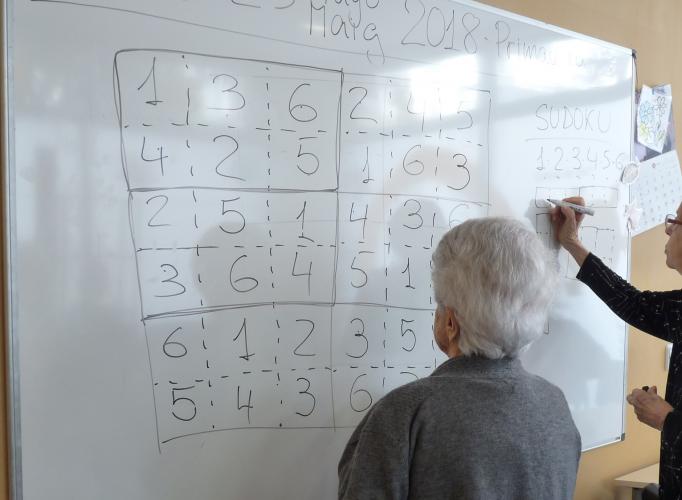 Maig 2018. Prima
1 3 6 2 4 5
4 2 5 1 6 3
2 5 1 4 3 6
3 6 4 5 1
6 1 2 3 5
5 4 3 6
SUDOKU
1·2·3·4·5·6